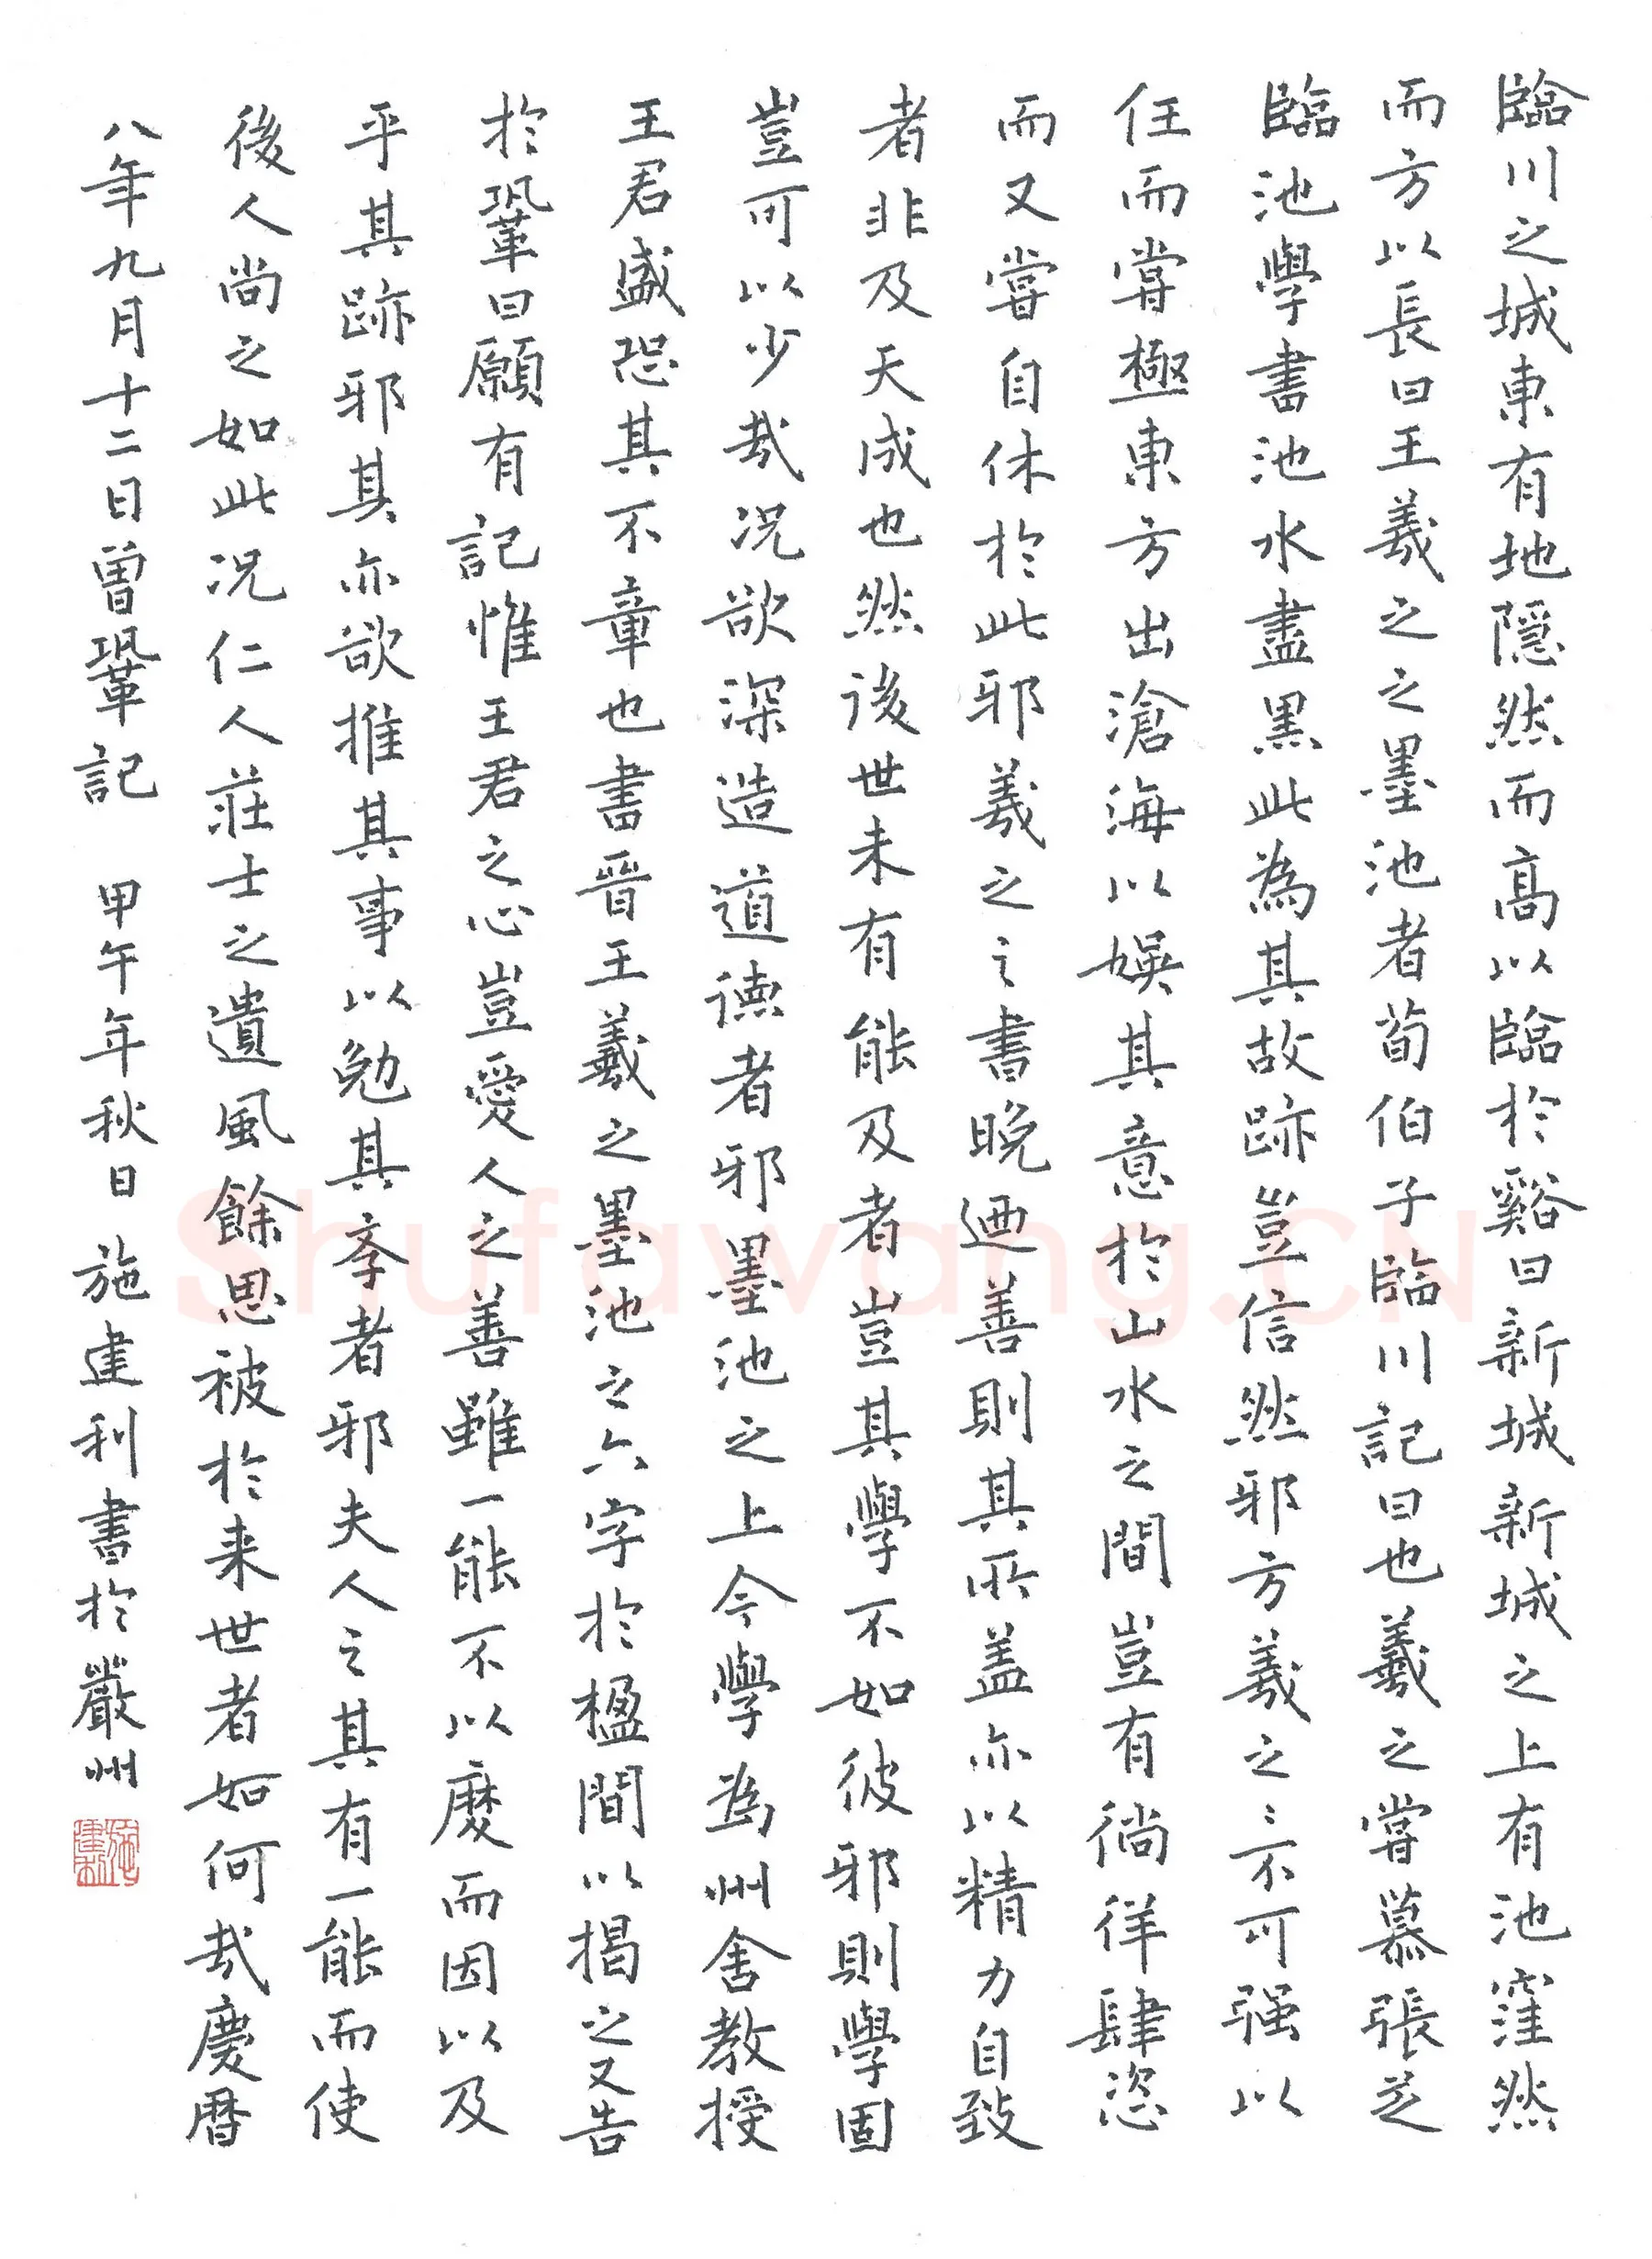 臨川之城東有地隱然而高以臨於谿曰新城新城之上有池窪然
而方以長曰王羲之之墨池者荀伯子臨川記曰也羲之嘗慕張芝
臨池學書池水盡黑此為其故跡豈信然邪方羲之之不可强以
仕而嘗極東方出滄海以娛其意於山水之間豈有徜徉肆恣
而又嘗自休於此邪羲之之書晚迺善則其所盖亦以精力自致
者非及天成也然後世未有能及者豈其學不如彼邪則學固
豈可以少哉况欲深造道德者邪墨池之上今學為州舍教授
王君盛恐其不章也書晉王羲之墨池之六字於楹間以揭之又告
於鞏曰願有記惟王君之心豈愛人之善雖一能不以廢而因以及
乎其跡邪其亦欲推其事以勉其孝者邪夫人之其有一能而使
後人尚之如此况仁人莊士之遺風餘思被於来世者如何哉慶曆
八年九月十二日曾鞏記 甲午年秋日 施建利書於嚴州
施建利
Shufawang.CN